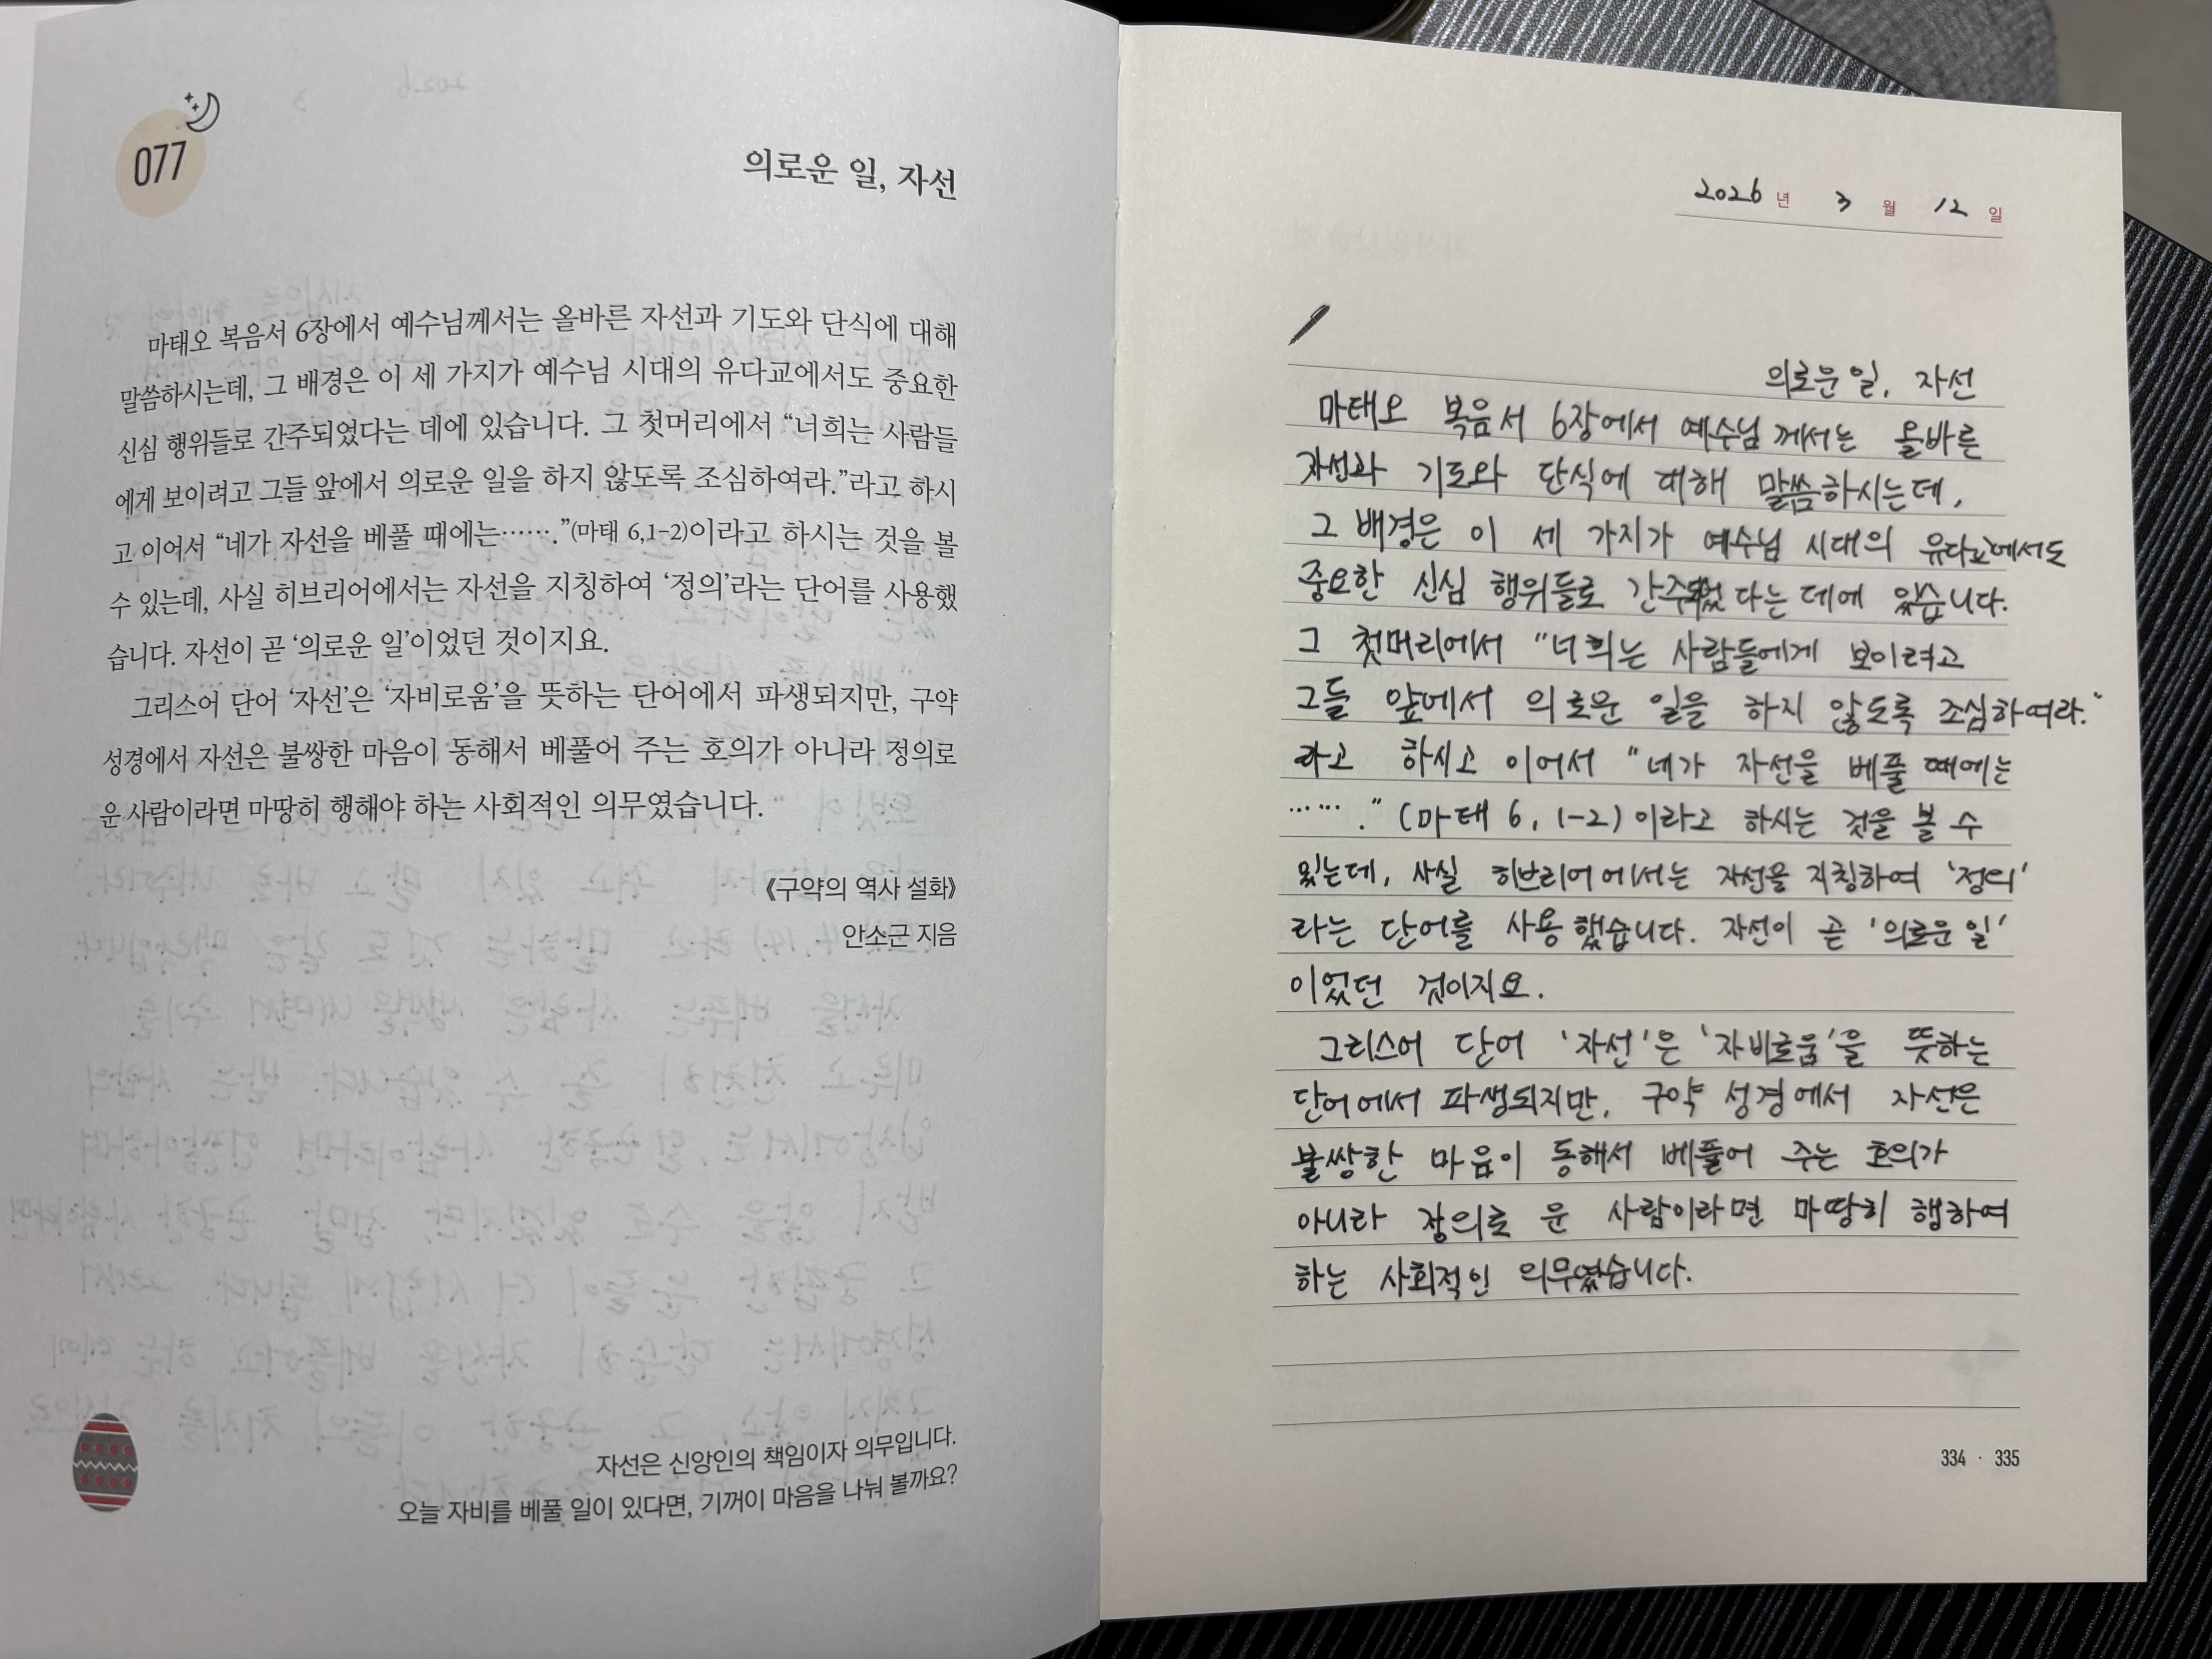 077
의로운 일, 자선
마태오 복음서 6장에서 예수님께서는 올바른 자선과 기도와 단식에 대해
말씀하시는데, 그 배경은 이 세 가지가 예수님 시대의 유다교에서도 중요한
신심 행위들로 간주되었다는 데에 있습니다. 그 첫머리에서 “너희는 사람들
에게 보이려고 그들 앞에서 의로운 일을 하지 않도록 조심하여라.”라고 하시
고 이어서 “네가 자선을 베풀 때에는…….”(마태 6,1-2)이라고 하시는 것을 볼
수 있는데, 사실 히브리어에서는 자선을 지칭하여 ‘정의’라는 단어를 사용했
습니다. 자선이 곧 ‘의로운 일’이었던 것이지요.
그리스어 단어 ‘자선’은 ‘자비로움’을 뜻하는 단어에서 파생되지만, 구약
성경에서 자선은 불쌍한 마음이 동해서 베풀어 주는 호의가 아니라 정의로
운 사람이라면 마땅히 행해야 하는 사회적인 의무였습니다.
《구약의 역사 설화》
안소근 지음
자선은 신앙인의 책임이자 의무입니다.
오늘 자비를 베풀 일이 있다면, 기꺼이 마음을 나눠 볼까요?
2026 년 3 월 12 일
의로운 일, 자선
마태오 복음서 6장에서 예수님께서는 올바른
자선과 기도와 단식에 대해 말씀하시는데,
그 배경은 이 세 가지가 예수님 시대의 유다교에서도
중요한 신심 행위들로 간주되었다는 데에 있습니다.
그 첫머리에서 “너희는 사람들에게 보이려고
그들 앞에서 의로운 일을 하지 않도록 조심하여라.”
라고 하시고 이어서 “네가 자선을 베풀 때에는
…….” (마태 6, 1-2) 이라고 하시는 것을 볼 수
있는데, 사실 히브리어에서는 자선을 지칭하여 ‘정의’
라는 단어를 사용했습니다. 자선이 곧 ‘의로운 일’
이었던 것이지요.
그리스어 단어 ‘자선’은 ‘자비로움’을 뜻하는
단어에서 파생되지만, 구약 성경에서 자선은
불쌍한 마음이 동해서 베풀어 주는 호의가
아니라 정의로운 사람이라면 마땅히 행하여
하는 사회적인 의무였습니다.
334 · 335